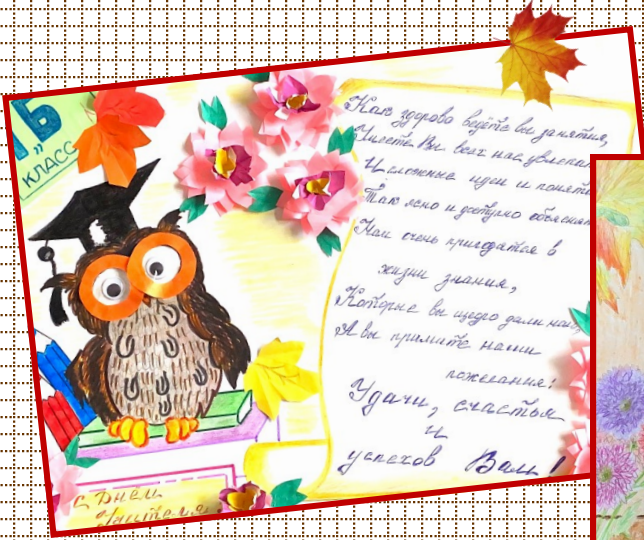 Ь"
КЛАСС
Как здорово ведёте вы занятия,
Умеете Вы всех нас увлекать
И сложные идеи и понятия
Так ясно и доступно объяснять
Нам очень пригодятся в
жизни знания,
Которые вы щедро дали нам,
А вы примите наши
пожелания:
Удачи, счастья
и
успехов Вам!
С Днём
Учителя